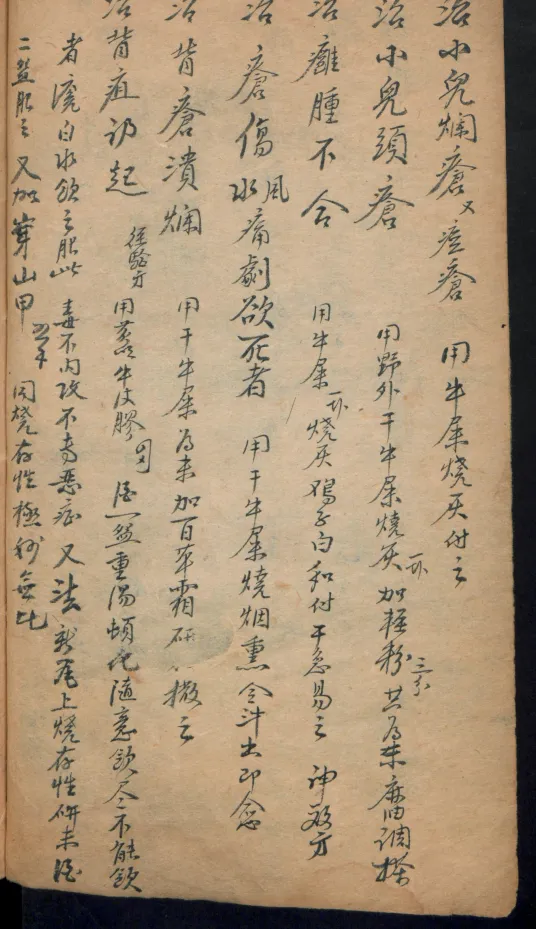 治小兒爛瘡又痘瘡 用牛屎燒灰付之
治小兒頭瘡 用野外干牛屎燒灰加輕粉三分共為末麻油調搽
治癰腫不合 用牛屎燒灰鴉子白和付干急易之 神效方
治瘡傷風水痛劇欲死者 用干牛屎燒烟熏令汁出即愈
治背瘡潰爛 用干牛屎為末加百草霜研撒之
治背疽初起 經驗方 用牛皮膠 酒一盆重湯頓化隨意飲尽不能飲
者滾白水飲之服此毒不內攻不專惡症 又法 瓦上燒存性研末酒
二盆服之 又加穿山甲 同燒存性極妙無比